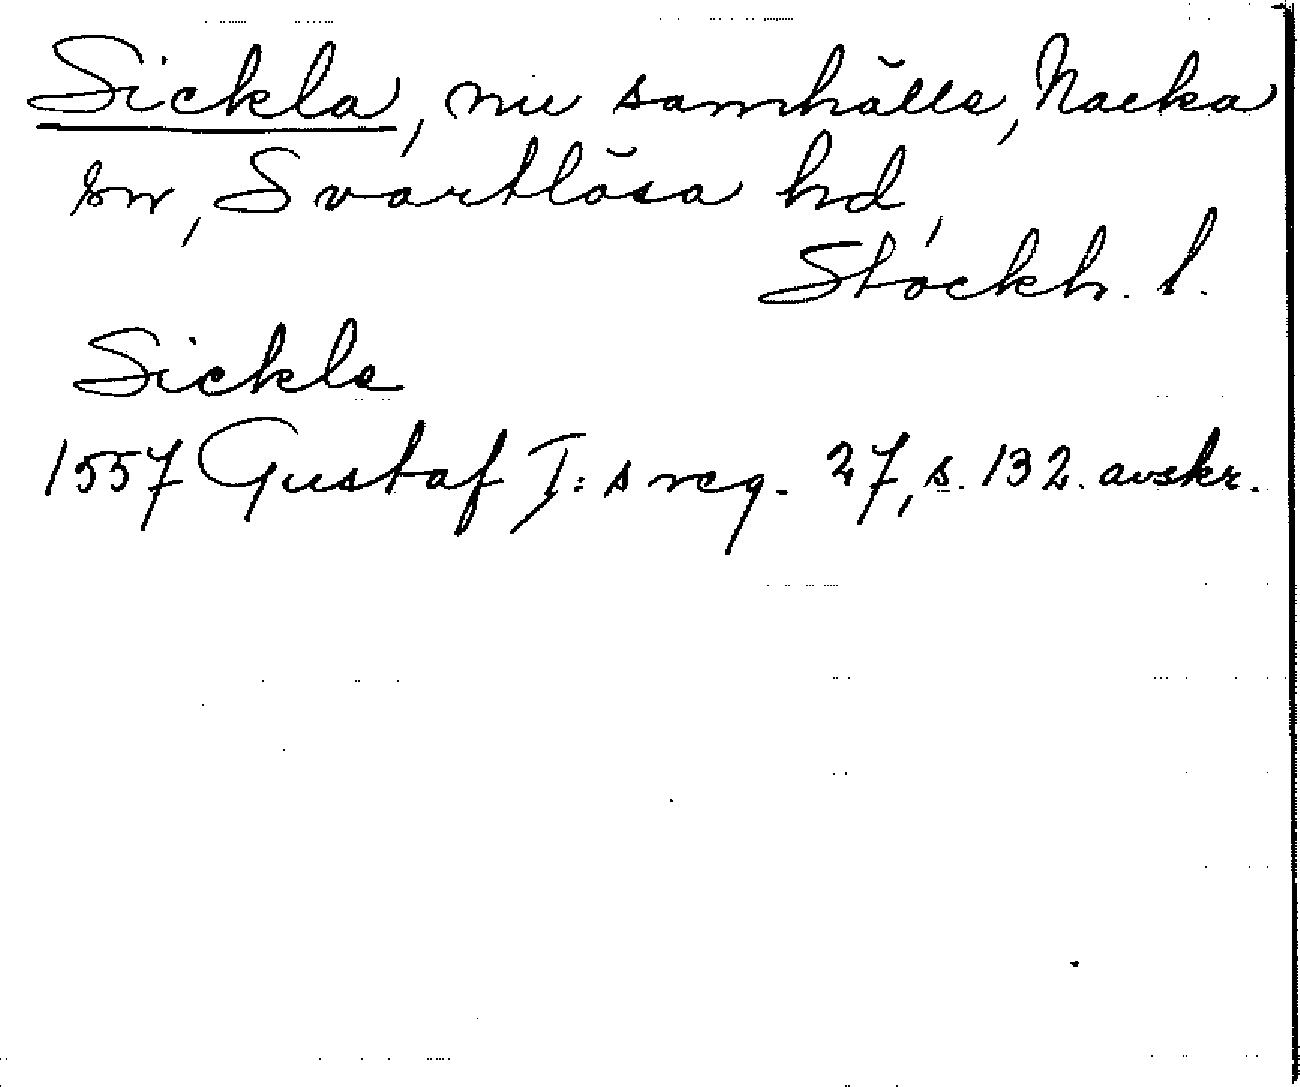 Sickla, nu samhälle, Nacka
sn, Svartlösa hd,
Stockh. l.
Sickle
1557 Gustaf I:s reg. 27, s. 132. avskr.